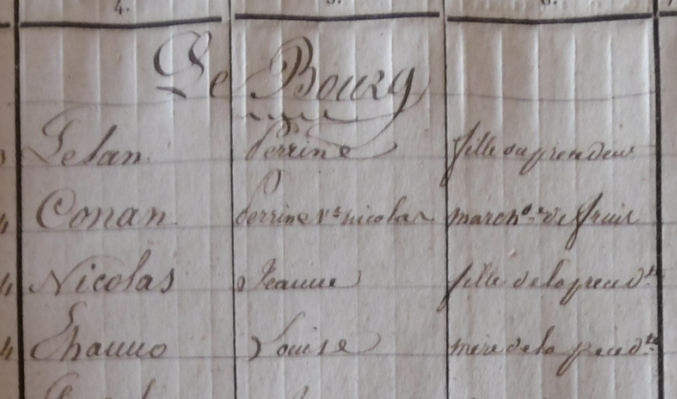 4. 5. 6.
Le Bourg
Perrine fille du précédent
4 Conan Perrine Ve nicolas marchde de fruit
4 Nicolas Jeanne fille de la précédte
4 Louise mère de la précédte